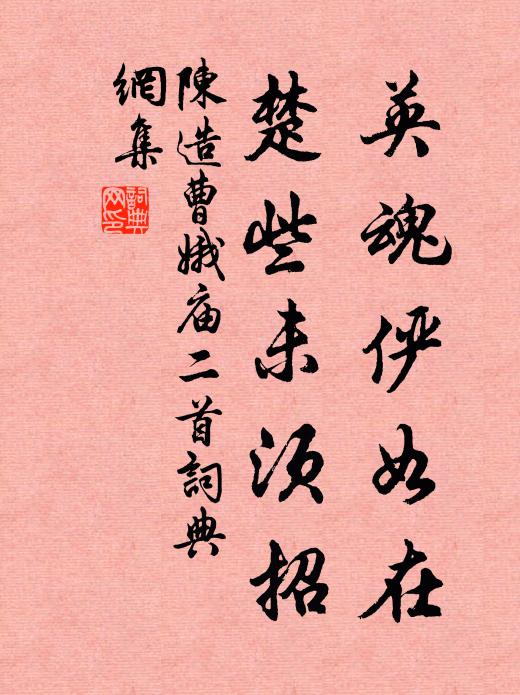 英魂伊如在
楚些未須招
陳造曹娥庙二首詞典
網集
詞典
网印